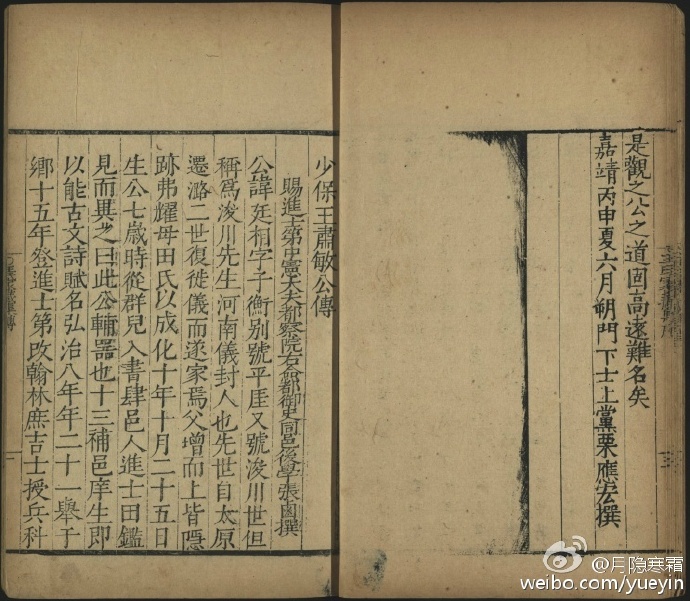 是觀之公之道固高遠難名矣
嘉靖丙申夏六月朔門下士上黨栗應宏撰
少保王肅敏公傳
賜進士第中憲大夫都察院右僉都御史同邑後學張鹵撰
公諱廷相字子衡别號平厓又號浚川世但
稱爲浚川先生河南儀封人也先世自太原
遷潞二世復徙儀而遂家焉父增而上皆隱
跡弗耀母田氏以成化十年十月二十五日
生公七歲時從群兒入書肆邑人進士田鑑
見而異之曰此公輔器也十三補邑庠生即
以能古文詩賦名弘治八年年二十一舉于
鄉十五年登進士第改翰林庶吉士授兵科
@月隐寒霜
weibo.com/yueyin